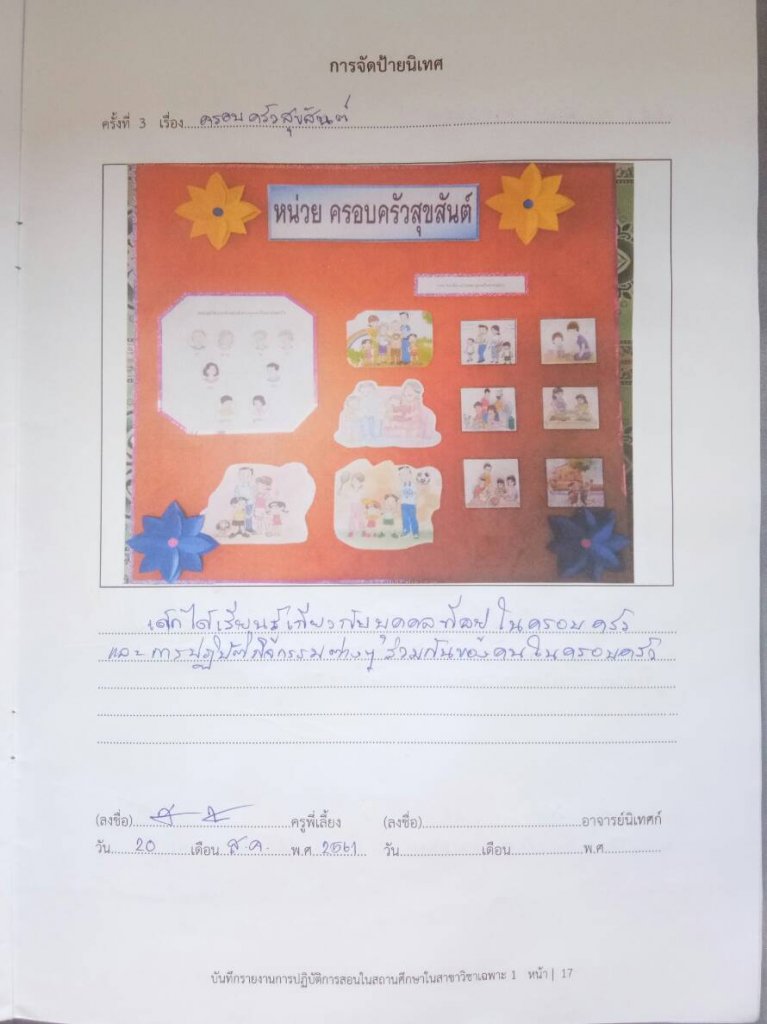 การจัดป้ายนิเทศ
ครั้งที่ 3 เรื่อง ครอบครัวสุขสันต์
หน่วย ครอบครัวสุขสันต์
เด็กได้เรียนรู้เกี่ยวกับบุคคลที่อยู่ในครอบครัว
และการปฏิบัติกิจกรรมต่างๆ ร่วมกันของคนในครอบครัว
(ลงชื่อ) ครูพี่เลี้ยง (ลงชื่อ) อาจารย์นิเทศก์
วัน 20 เดือน ส.ค. พ.ศ 2561 วัน เดือน พ.ศ
บันทึกรายงานการปฏิบัติการสอนในสถานศึกษาในสาขาวิชาเฉพาะ 1 หน้า | 17